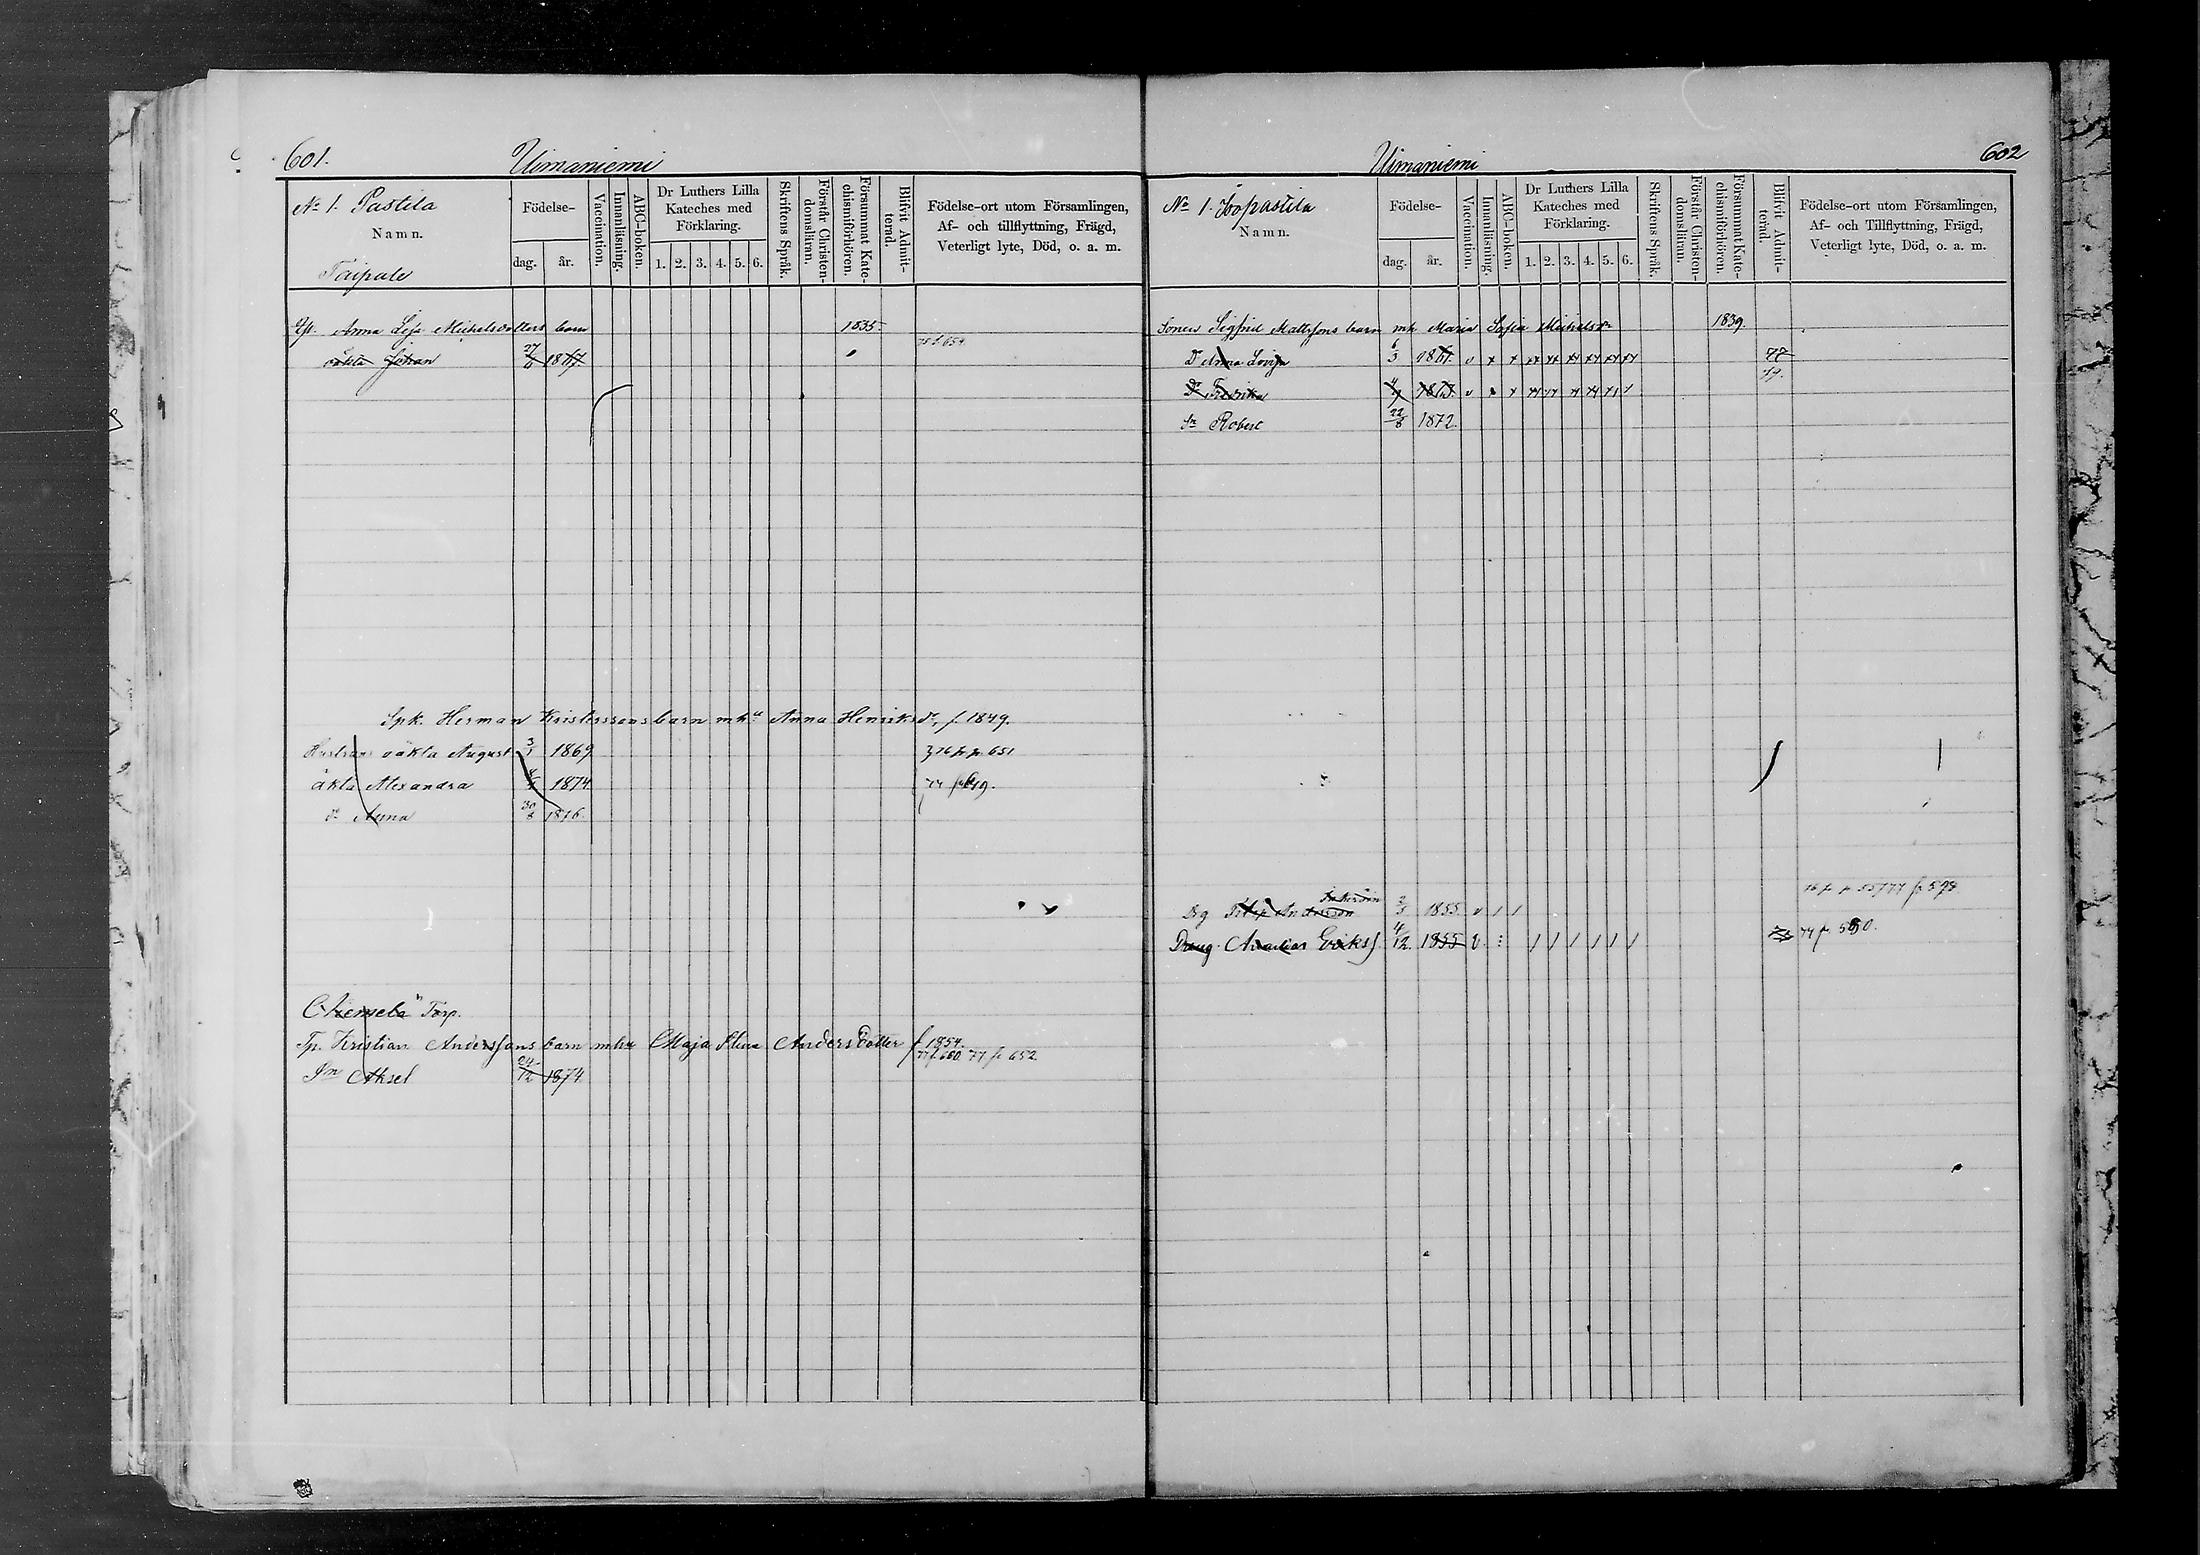 601.
Uimaniemi
No 1. Pastila
Namn.
Taipale
Födelse-
dag.
år.
Vaccination.
Innanläsning.
ABC-boken.
Dr Luthers Lilla
Kateches med
Förklaring.
1. 2. 3. 4. 5. 6.
Skriftens Språk.
Förstår Christen-
domsläran.
Försummat Kate-
chismiförhören.
Blifvit Admit-
terad.
Födelse-ort utom Församlingen,
Af- och tillflyttning, Frägd,
Veterligt lyte, Död, o. a. m.
Anna Leja Michelsdotters barn 1835
oäkta Johan 27
Spk. Herman Kristerssons barn mhu Anna Henriksdr, f. 1849.
Hustruns oäkta August 3/1 1869 76 fr p. 651
äkta Alexandra 1874
dr Anna 30/8 1876.
Torp.
Tp. Kristian Anderssons barn mhu Maja Stina Andersdotter f 1854.
77 f. 660. 77 p 652
Sn Aksel 24/12 1874
602
Uimaniemi
No 1. Isopastila
Namn.
Födelse-
dag.
år.
Vaccination.
Innanläsning.
ABC-boken.
Dr Luthers Lilla
Kateches med
Förklaring.
1. 2. 3. 4. 5. 6.
Skriftens Språk.
Förstår Christen-
domsläran.
Försummat Kate-
chismiförhören.
Blifvit Admit-
terad.
Födelse-ort utom Församlingen,
Af- och Tillflyttning, Frägd,
Veterligt lyte, Död, o. a. m.
Sonen Sigfrid Mattssons barn mh Maria Sofia Michelsdr 1839.
Dr Anna Lovisa 6/3 1861. v 77
79.
Dr Fredrika v
Sn Robert 22/8 1872.
77 p 598
Drg Andersson 1855 v / /
Dräng Erikss 4/12. 1855 v / / / / / / 77 p. 590.